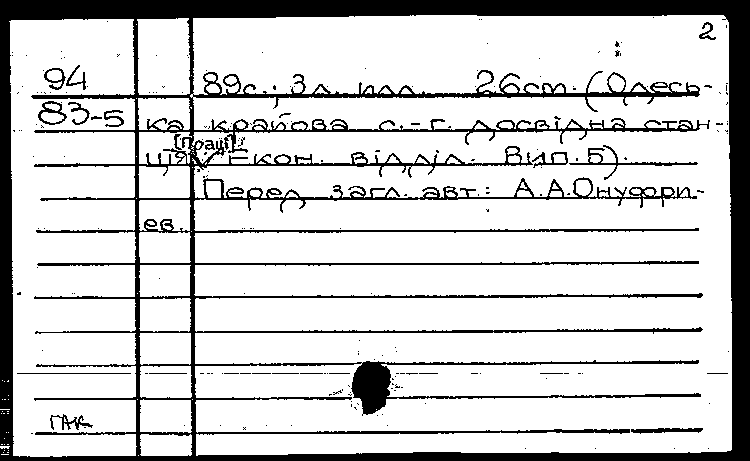 2
94
83-5
89с.; 3 л. илл. 26см. (Одесь-
ка крайова с.-г. досвідна стан-
ція [Праці] Екон. відділ. Вип. 5).
Перед загл. авт.: А.А.Онуфри-
ев.
ГАК